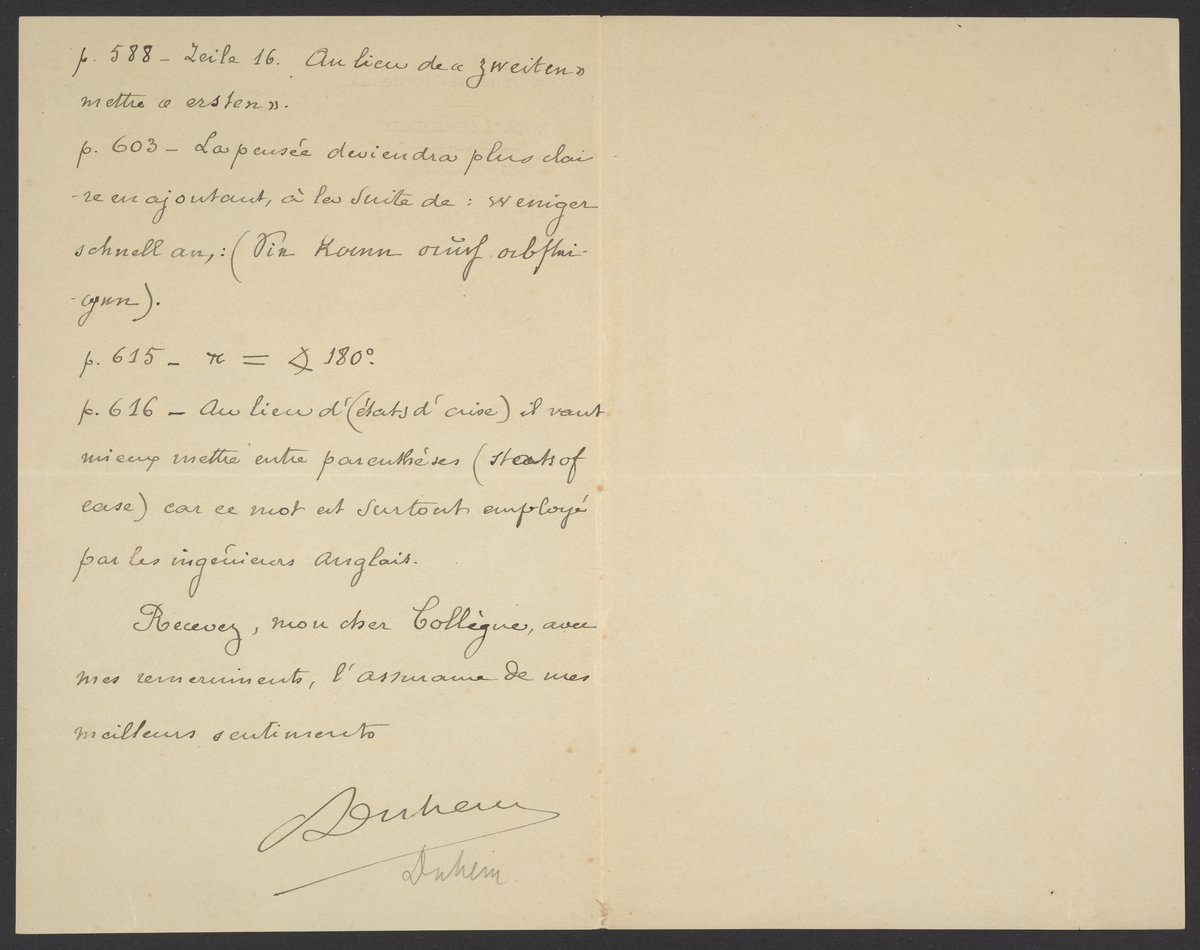 p. 588 – Zeile 16. Au lieu de « zweiten »
mettre « ersten ».
p. 603 – La pensée deviendra plus clai
-re en ajoutant, à la suite de : weniger
schnell an, : ( Sie kann auch abstei-
-gen ).
p. 615 – π = ∢ 180°.
p. 616 – Au lieu d'(états d'aise) il vaut
mieux mettre entre parenthèses ( state of
ease) car ce mot est surtout employé
par les ingénieurs anglais.
Recevez, mon cher Collègue, avec
mes remerciments, l'assurance de mes
meilleurs sentiments
Duhem
Duhem